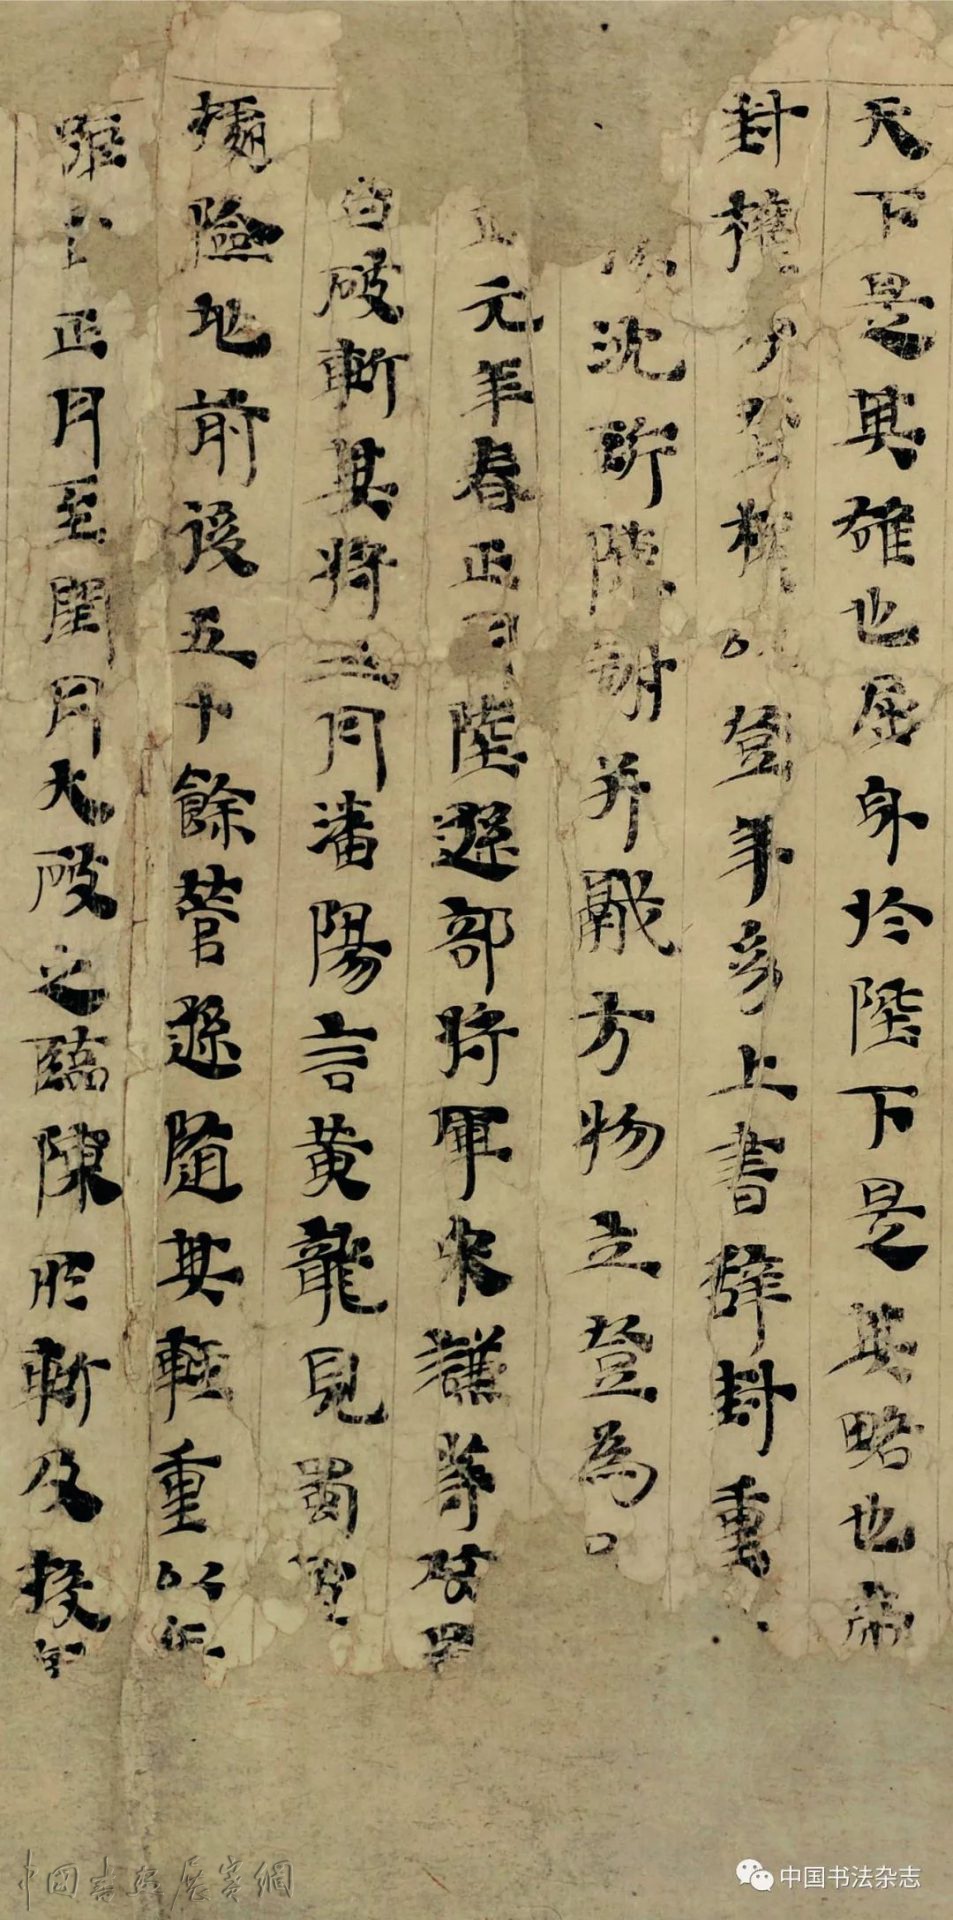 天下是其雄也屈身於陛下是其略也帝
封權子登權以登年幼上書辭封重
沈珩陳謝并獻方物立登為
元年春正月陸遜部將軍宋謙等攻蜀
皆破斬其將三月潘陽言黃龍見蜀軍
據險地前後五十餘營遜隨其輕重以兵
正月至閏月大破之臨陳所斬及投兵
中国书法杂志